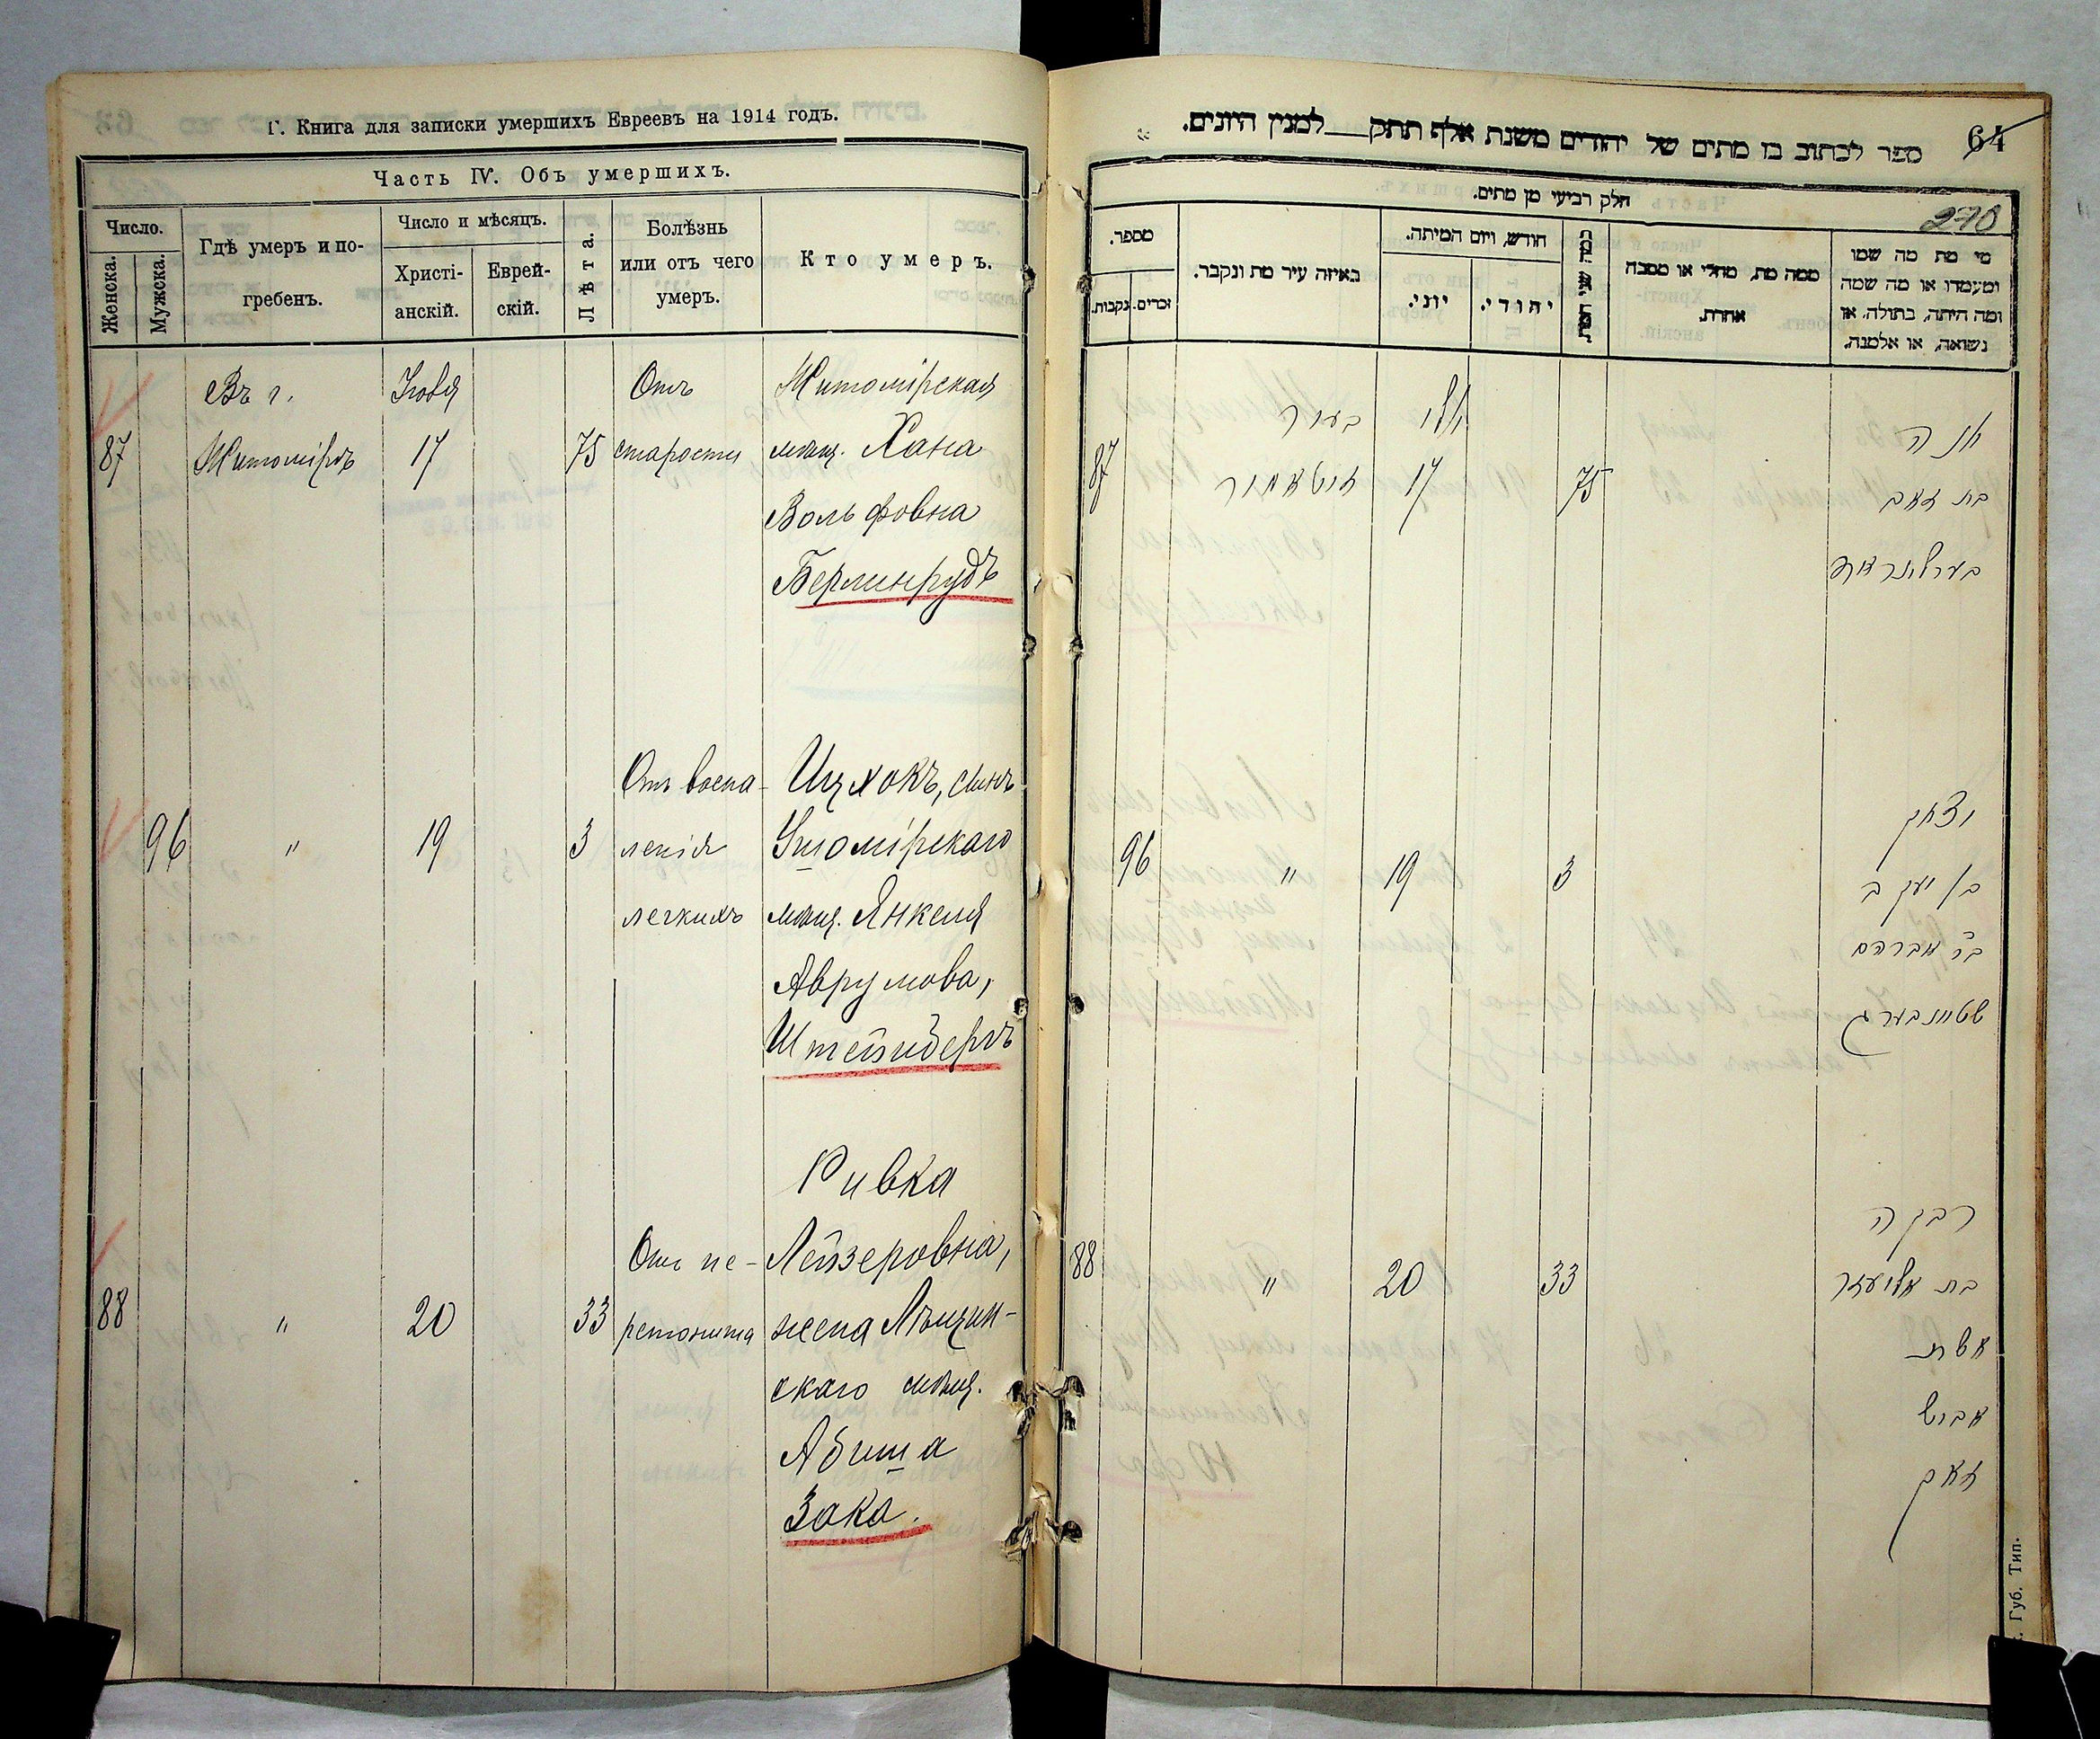 Г. Книга для записки умершихъ Евреевъ на 1914 годъ.
Часть IV. Объ умершихъ.
Число.
Женска.
Мужска.
Гдѣ умеръ и по-
гребенъ.
Число и мѣсяцъ.
Христі-
анскій.
Еврей-
скій.
Лѣта.
Болѣзнь
или отъ чего
умеръ.
Кто умеръ.
Въ г. Іюля Отъ Житомірская
87 Житомірѣ 17 75 старости мѣщ. Хана
Вольфовна
Берлинрудъ
Отъ воспа- Ицхокъ, сынъ
96 " 19 3 ленія Ушомірскаго
легкихъ мѣщ. Янкеля
Аврумова,
Штейнберга
Ривка
Отъ пе- Лейзеровна,
88 " 20 33 ретонита жена Лѣщин-
скаго мѣщ.
Абиша
Зака.
ספר לכתוב בו מתים של יהודים משנת אלף תתק למנין היונים.
64
חלק רביעי מן מתים.
270
מספר.
נקבות.
זכרים.
באיזה עיר מת ונקבר.
חודש, ויום המיתה.
יוני.
יהודי.
ממה מת, מחלי או מסבה
אחרת.
מי מת מה שמו
ומעמדו או מה שמה
ומה היתה, בתולה, או
נשואה, או אלמנה.
בעיר יולי חנה
87 זיטאמיר 17 75 בת זאב
יצחק
96 " 19 3 בן יעקב
בר אברהם
שטיינבערג
רבקה
88 " 20 33 בת אליעזר
אשת
אביש
זאק
Губ. Тип.